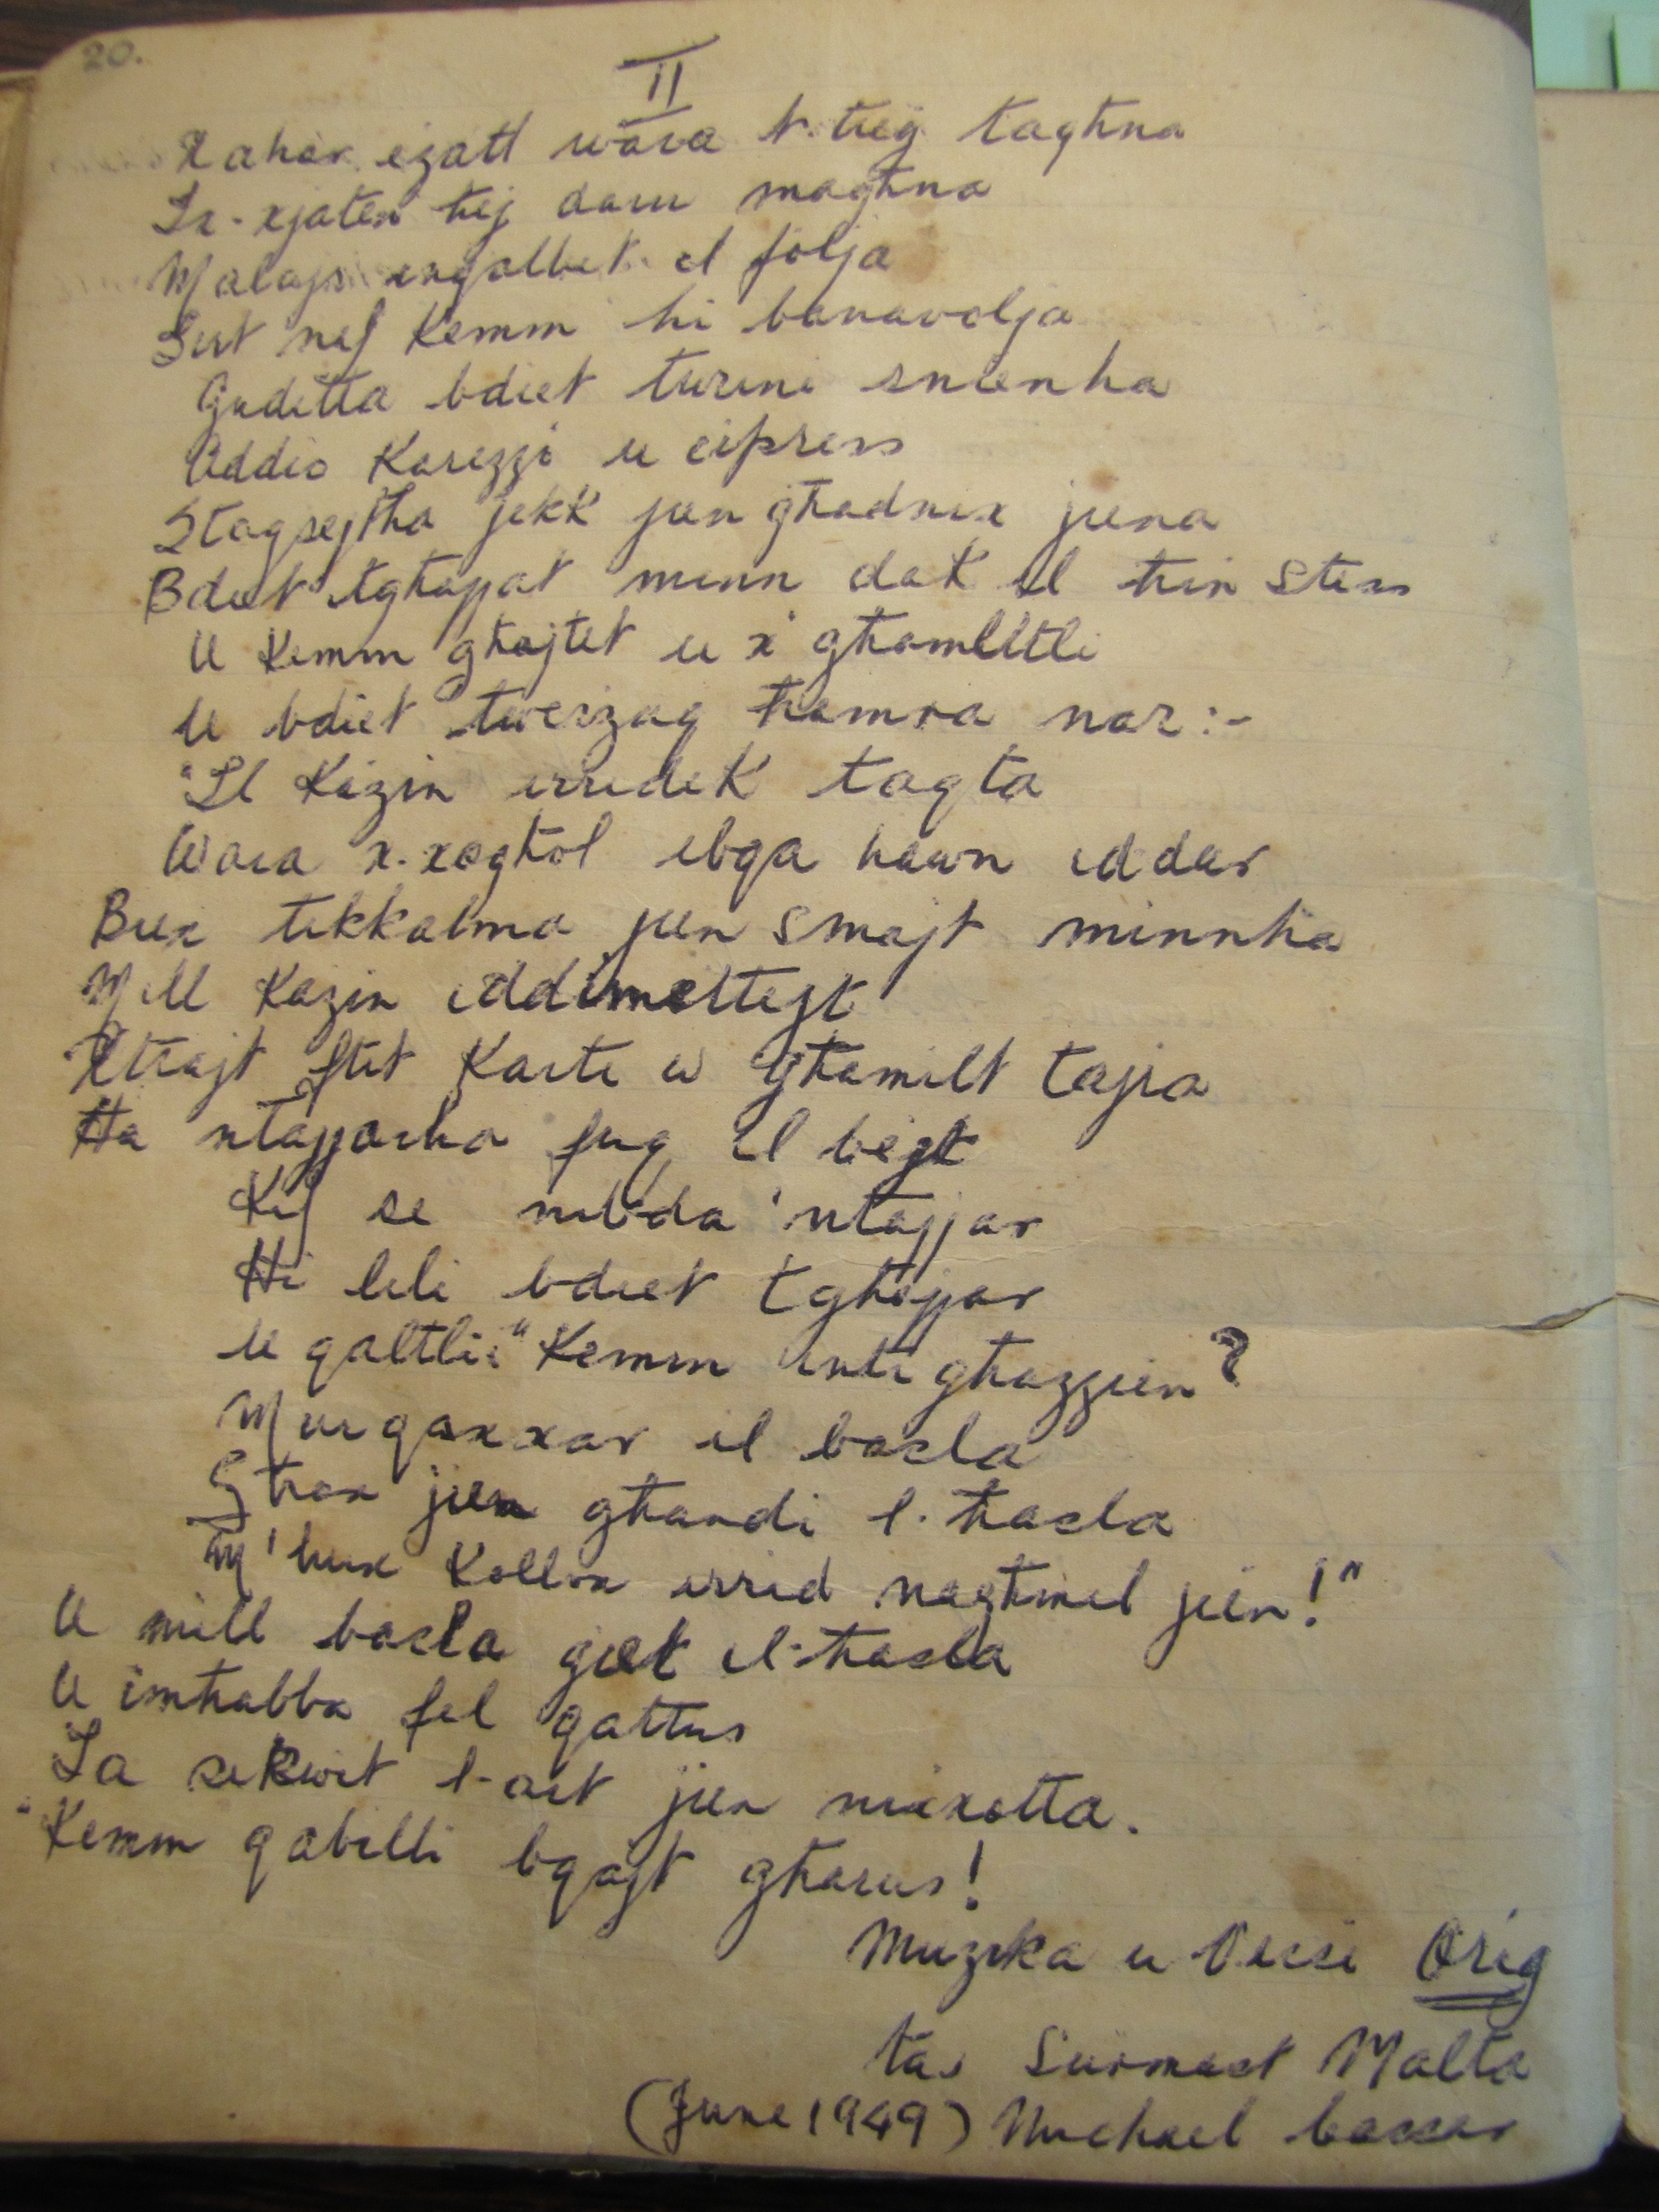 20.
II
Xahar eżatt wara t-tieġ tagħna
Ix-xjaten ħej daru magħna
Malajr inqalbet il folja
Sirt naf kemm hi banavolja
Ġuditta bdiet turini snienha
Addio karezzi u ċipress
Staqsejtha jekk jien għadnix jiena
Bdiet tgħajjat minn dak il ħin stess
U kemm għajtet u x' għamlitli
U bdiet twerżaq ħamra nar:-
"Il Każin irridek taqta
Wara x-xogħol ibqa hawn iddar
Biex tikkalma jien smajt minnha
Mill Każin iddimettejt
Xtrajt ftit karti u għamilt tajra
Ħa ntajjarha fuq il bejt
Kif se nibda 'ntajjar
Hi lili bdiet tgħajjar
U qaltli: "Kemm inti għażżien?
Mur qaxxar il basla
Għax jien għandi l-ħasla
M'hux kollox irrid nagħmel jien!"
U mill basla ġiet il-ħasla
U imħabba fel qattus
Sa sikwit l-art jien nixxotta.
"Kemm qabilli bqajt għarus!
Muzika u Versi Orig
tas Surmast Malta
(June 1949) Michael